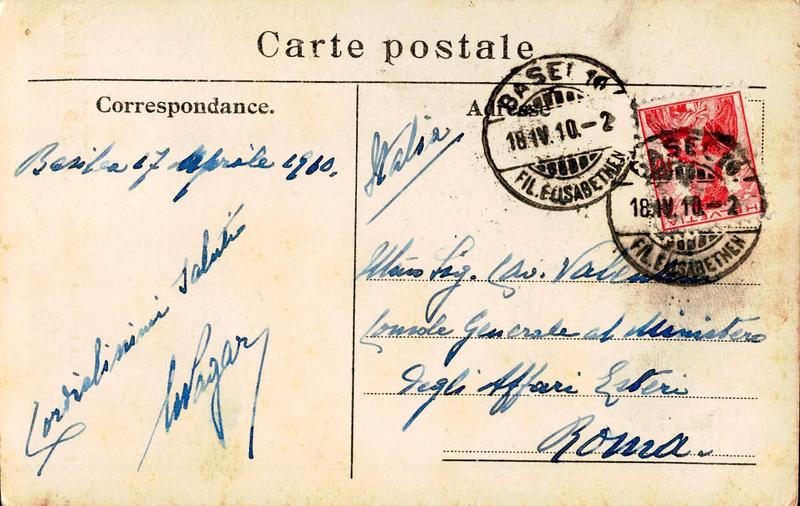 Carte postale
Correspondance.
Adresse
BASEL 10
18.IV.10.-2
FIL. ELISABETHEN
BASEL 10
18.IV.10.-2
FIL. ELISABETHEN
HELVETIA
Basilea 17 Aprile 1910.
Italia
Cordialissimi saluti
Illmo Sig. Cav.
Console Generale al Ministero
degli Affari Esteri
Roma.